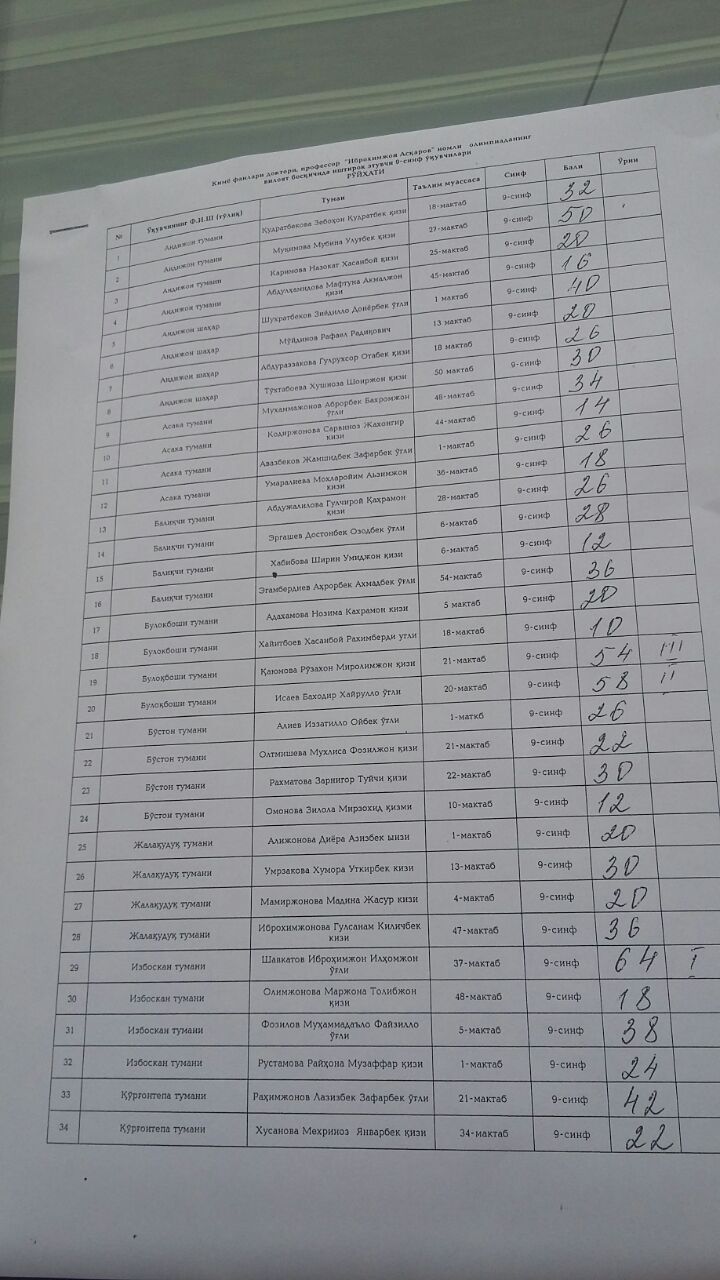 Кимё фанлари доктори, профессор "Иброхимжон Асқаров" номли олимпиаданинг
вилоят босқичида иштирок этувчи 9-синф ўқувчилари
РЎЙХАТИ
№ Ўқувчининг Ф.И.Ш (тўлиқ) Туман Таълим муассаса Синф Бали Ўрни
1 Андижон тумани Қудратбекова Зебохон Қудратбек қизи 18-мактаб 9-синф 32
2 Андижон тумани Муқимова Мубина Улуғбек қизи 27-мактаб 9-синф 50
3 Андижон тумани Каримова Назокат Хасанбой қизи 25-мактаб 9-синф 20
4 Андижон тумани Абдулҳамидова Мафтуна Акмалжон қизи 45-мактаб 9-синф 16
5 Андижон шаҳар Шухратбеков Зиёдилло Донёрбек ўғли 1 мактаб 9-синф 40
6 Андижон шаҳар Мўйдинов Рафаел Радикович 13 мактаб 9-синф 20
7 Андижон шаҳар Абдураззакова Гулрухсор Отабек қизи 18 мактаб 9-синф 26
8 Андижон шаҳар Тўхтабоева Хушноза Шоиржон қизи 50 мактаб 9-синф 30
9 Асака тумани Мухаммажонов Аброрбек Бахромжон ўғли 48-мактаб 9-синф 34
10 Асака тумани Кодиржонова Сарвиноз Жахонгир қизи 44-мактаб 9-синф 14
11 Асака тумани Авазбеков Жамшидбек Зафарбек ўғли 1-мактаб 9-синф 26
12 Асака тумани Умаралиева Мохларойим Аъзимжон қизи 36-мактаб 9-синф 18
13 Балиқчи тумани Абдужалилова Гулчирой Қаҳрамон қизи 28-мактаб 9-синф 26
14 Балиқчи тумани Эргашев Достонбек Озодбек ўғли 6-мактаб 9-синф 28
15 Балиқчи тумани Хабибова Ширин Умиджон қизи 6-мактаб 9-синф 12
16 Балиқчи тумани Эгамбердиев Аҳрорбек Ахмадбек ўғли 54-мактаб 9-синф 36
17 Булоқбоши тумани Адахамова Нозима Кахрамон кизи 5 мактаб 9-синф 20
18 Булоқбоши тумани Хайитбоев Хасанбой Рахимберди угли 18-мактаб 9-синф 10
19 Булоқбоши тумани Қаюмова Рўзахон Миролимжон қизи 21-мактаб 9-синф 54 III
20 Булоқбоши тумани Исаев Баходир Хайрулло ўғли 20-мактаб 9-синф 58 II
21 Бўстон тумани Алиев Иззатилло Ойбек ўғли 1-маткб 9-синф 26
22 Бўстон тумани Олтмишева Мухлиса Фозилжон қизи 21-мактаб 9-синф 22
23 Бўстон тумани Рахматова Зарнигор Туйчи қизи 22-мактаб 9-синф 30
24 Бўстон тумани Омонова Зилола Мирзохид қизми 10-мактаб 9-синф 12
25 Жалақудуқ тумани Алижонова Диёра Азизбек ыизи 1-мактаб 9-синф 20
26 Жалақудуқ тумани Умрзакова Хумора Уткирбек кизи 13-мактаб 9-синф 30
27 Жалақудуқ тумани Мамиржонова Мадина Жасур кизи 4-мактаб 9-синф 20
28 Жалақудуқ тумани Иброхимжонова Гулсанам Киличбек кизи 47-мактаб 9-синф 36
29 Избоскан тумани Шавкатов Иброҳимжон Илҳомжон ўғли 37-мактаб 9-синф 64 I
30 Избоскан тумани Олимжонова Маржона Толибжон қизи 48-мактаб 9-синф 18
31 Избоскан тумани Фозилов Муҳаммадаъло Файзилло ўғли 5-мактаб 9-синф 38
32 Избоскан тумани Рустамова Райҳона Музаффар қизи 1-мактаб 9-синф 24
33 Қўрғонтепа тумани Раҳимжонов Лазизбек Зафарбек ўғли 21-мактаб 9-синф 42
34 Қўрғонтепа тумани Хусанова Мехриноз Январбек қизи 34-мактаб 9-синф 22